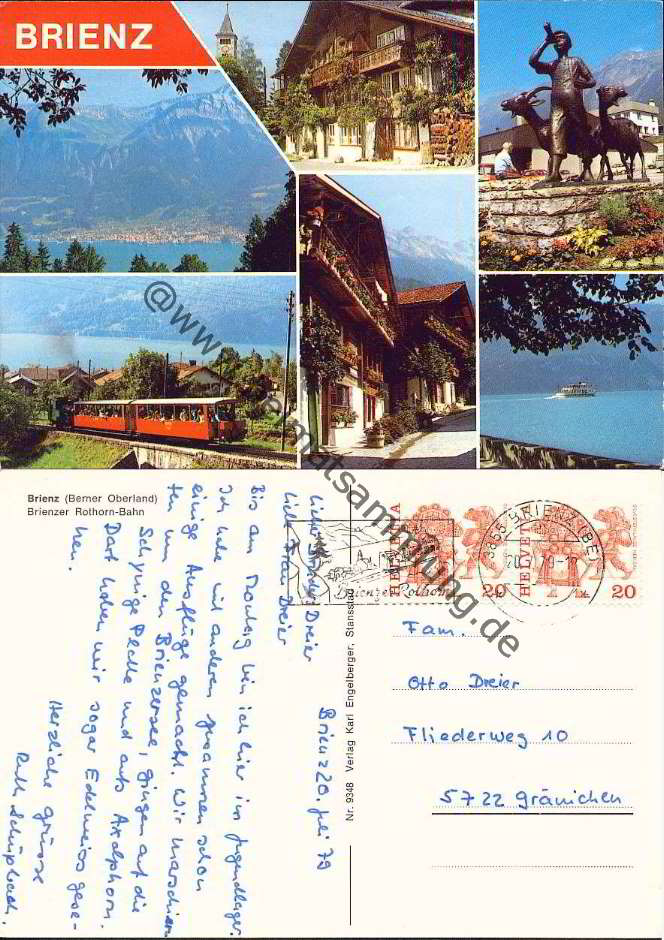 BRIENZ
Brienz (Berner Oberland)
Brienzer Rothorn-Bahn
Brienz 20. Juli 79
Lieber Herr Dreier
Liebe Frau Dreier
Bis am Montag bin ich hier im Jugendlager.
Ich habe mit anderen zusammen schon
einige Ausflüge gemacht. Wir marschier-
ten um den Brienzersee, gingen auf die
Schynige Platte und aufs Axalphorn.
Dort haben wir sogar Edelweiss gese-
hen.
Herzliche Grüsse
Ruth Schüpbach.
Nr. 9348 Verlag Karl Engelberger, Stansstad
Brienzer Rothorn
HELVETIA
20
HELVETIA
20
3855 BRIENZ (BE)
Fam.
Otto Dreier
Fliederweg 10
5722 Gränichen
@www.heimatsammlung.de